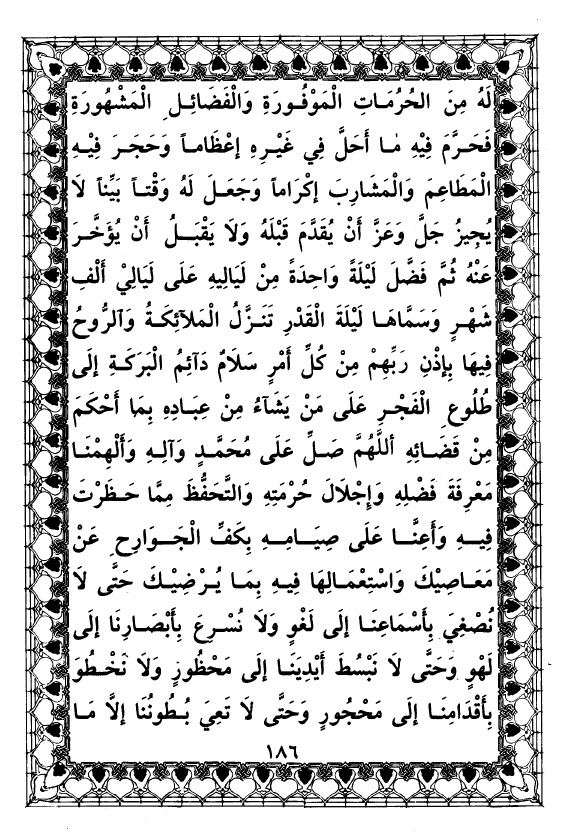 لَهُ مِنَ الْحُرُمَاتِ الْمَوْفُورَةِ وَالْفَضَائِلِ الْمَشْهُورَةِ
فَحَرَّمَ فِيْهِ مَا أَحَلَّ فِي غَيْرِهِ إِعْظَاماً وَحَجَرَ فِيْهِ
الْمَطَاعِمَ وَالْمَشَارِبَ إِكْرَاماً وَجَعَلَ لَهُ وَقْتاً بَيِّناً لَا
يُجِيزُ جَلَّ وَعَزَّ أَنْ يُقَدَّمَ قَبْلَهُ وَلَا يَقْبَلُ أَنْ يُؤَخَّرَ
عَنْهُ ثُمَّ فَضَّلَ لَيْلَةً وَاحِدَةً مِنْ لَيَالِيهِ عَلَى لَيَالِيْ أَلْفِ
شَهْرٍ وَسَمَّاهَا لَيْلَةَ الْقَدْرِ تَنَزَّلُ الْمَلَآئِكَةُ وَالرُّوحُ
فِيهَا بِإِذْنِ رَبِّهِمْ مِنْ كُلِّ أَمْرٍ سَلَامٌ دَآئِمُ الْبَرَكَةِ إِلَى
طُلُوعِ الْفَجْرِ عَلَى مَنْ يَشَآءُ مِنْ عِبَادِهِ بِمَا أَحْكَمَ
مِنْ قَضَائِهِ أَللَّهُمَّ صَلِّ عَلَى مُحَمَّدٍ وَآلِهِ وَأَلْهِمْنَا
مَعْرِفَةَ فَضْلِهِ وَإِجْلَالَ حُرْمَتِهِ وَالتَّحَفُّظَ مِمَّا حَظَرْتَ
فِيهِ وَأَعِنَّا عَلَى صِيَامِهِ بِكَفِّ الْجَوَارِحِ عَنْ
مَعَاصِيْكَ وَاسْتِعْمَالِهَا فِيهِ بِمَا يُرْضِيْكَ حَتَّى لَا
نُصْغِيَ بِأَسْمَاعِنَا إِلَى لَغْوٍ وَلَا نُسْرِعَ بِأَبْصَارِنَا إِلَى
لَهْوٍ وَحَتَّى لَا نَبْسُطَ أَيْدِيَنَا إِلَى مَحْظُورٍ وَلَا نَخْطُوَ
بِأَقْدَامِنَا إِلَى مَحْجُورٍ وَحَتَّى لَا تَعِيَ بُطُونُنَا إِلَّا مَا
١٨٦